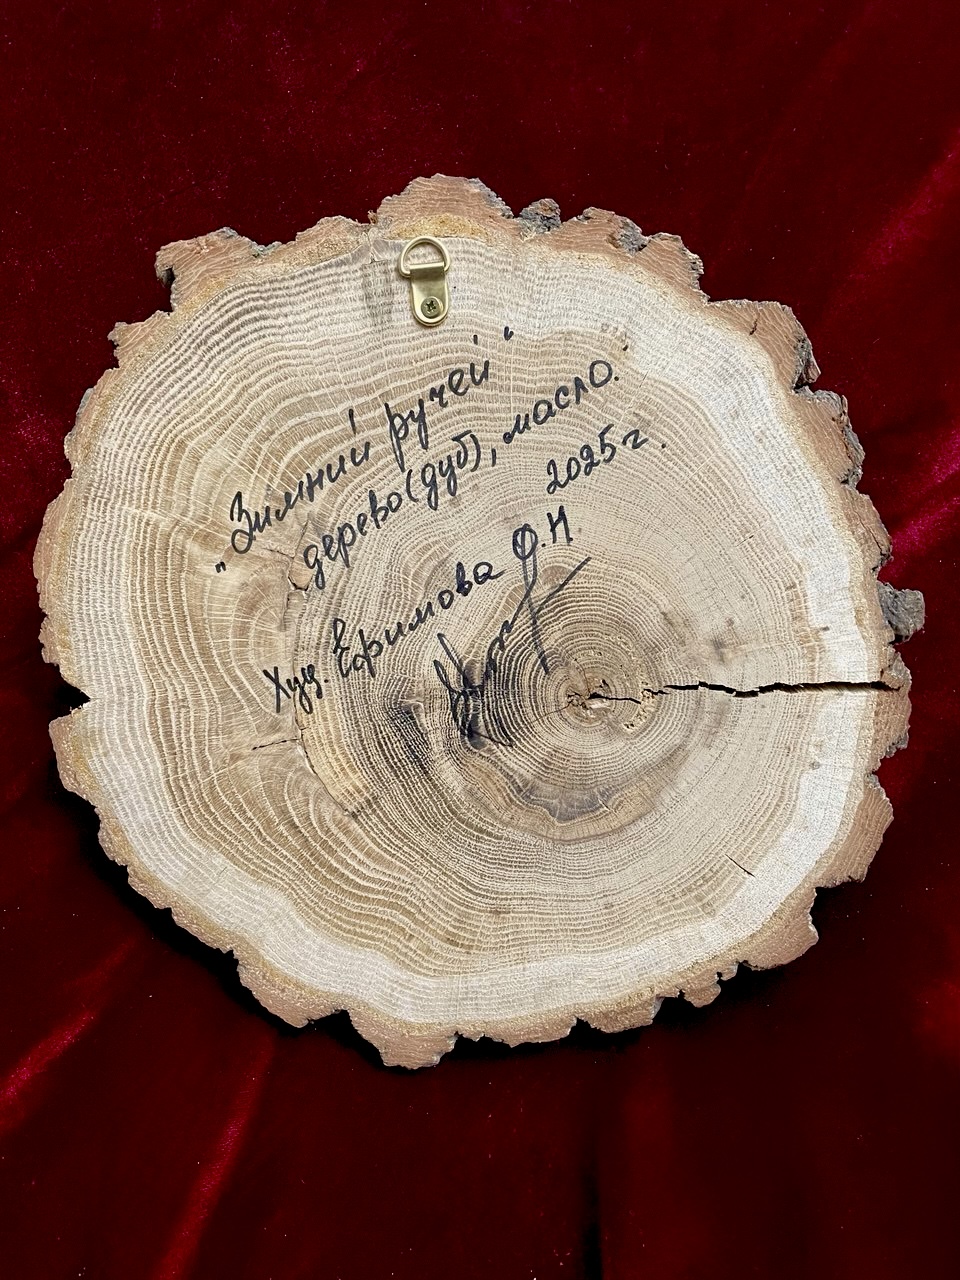 „Зимний ручей“
дерево(дуб), масло.
2025 г.
Худ. Ефимова О.Н.